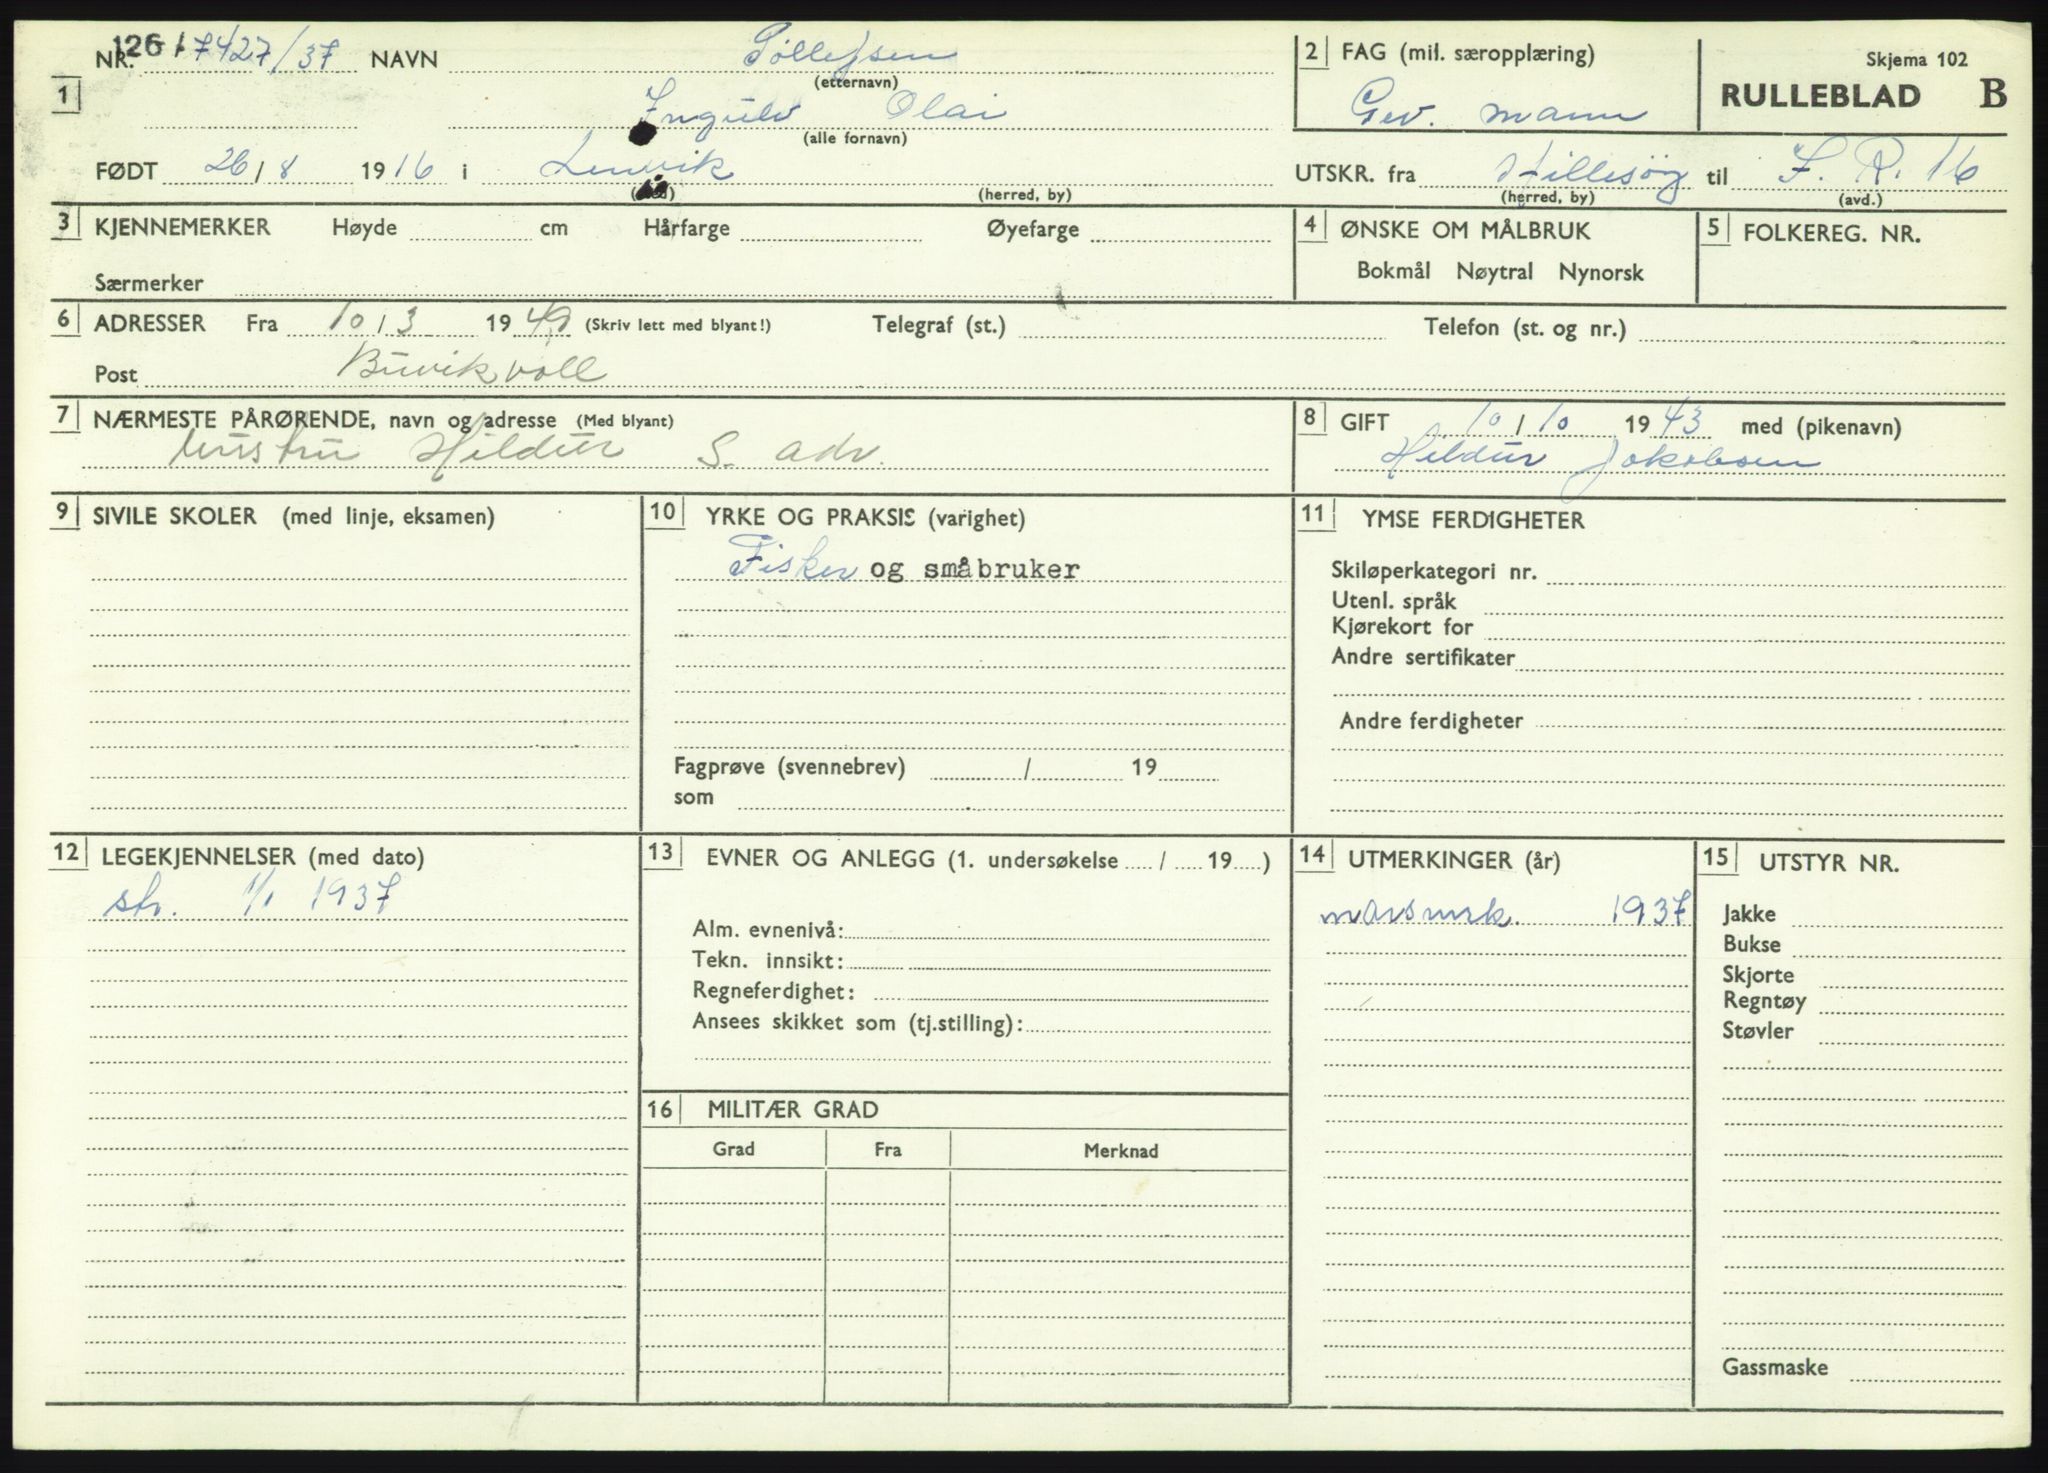 NR. 126/7427/37 NAVN Sollefsen
(etternavn)
1
Ingulv Olai
(alle fornavn)
FØDT 26/8 1916 i Lenvik
(sted) (herred, by)
2 FAG (mil. særopplæring)
Gev. mann
Skjema 102
RULLEBLAD B
UTSKR. fra Hillesøy til I. R. 16
(herred, by) (avd.)
3 KJENNEMERKER Høyde cm Hårfarge Øyefarge
Særmerker
4 ØNSKE OM MÅLBRUK
Bokmål Nøytral Nynorsk
5 FOLKEREG. NR.
6 ADRESSER Fra 10/3 1949 (Skriv lett med blyant!) Telegraf (st.) Telefon (st. og nr.)
Post Buvikvoll
7 NÆRMESTE PÅRØRENDE, navn og adresse (Med blyant)
hustru Hildur S. adr.
8 GIFT 10/10 1943 med (pikenavn)
Hildur Jakobsen
9 SIVILE SKOLER (med linje, eksamen)
10 YRKE OG PRAKSIS (varighet)
Fisker og småbruker
Fagprøve (svennebrev) / 19
som
11 YMSE FERDIGHETER
Skiløperkategori nr.
Utenl. språk
Kjørekort for
Andre sertifikater
Andre ferdigheter
12 LEGEKJENNELSER (med dato)
str. 1/1 1937
13 EVNER OG ANLEGG (1. undersøkelse / 19 )
Alm. evnenivå:
Tekn. innsikt:
Regneferdighet:
Ansees skikket som (tj.stilling):
14 UTMERKINGER (år)
marsmrk. 1937
15 UTSTYR NR.
Jakke
Bukse
Skjorte
Regntøy
Støvler
Gassmaske
16 MILITÆR GRAD
Grad Fra Merknad